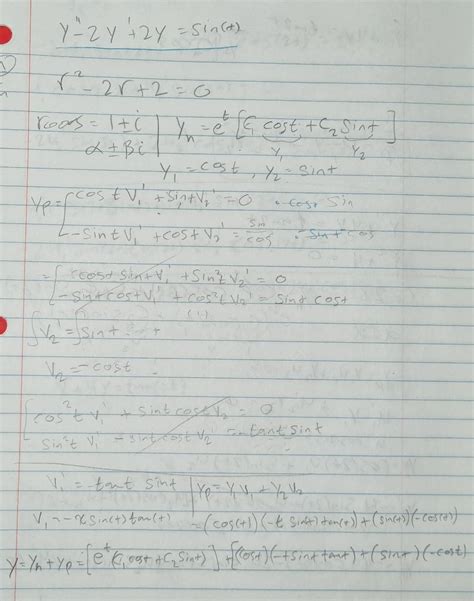 y'' - 2y' + 2y = sin(t)
r² - 2r + 2 = 0
roots = 1 ± i | y_h = e^t [C₁ cost + C₂ sint]
α ± Bi y₁ y₂
y₁ = cost, y₂ = sint
yp = { cost v₁' + sint v₂' = 0 · cos · sin
-sint v₁' + cost v₂' = sin/cos · -sin + cos
= { cost sint v₁' + sin²t v₂' = 0
-sint cost v₁' + cos²t v₂' = sint cost
(1)
∫ v₂' = ∫ sint
v₂ = -cost
{ cos²t v₁' + sint cost v₂' = 0
sin²t v₁' - sint cost v₂' = -tant sint
v₁' = -tant sint | yp = y₁v₁ + y₂v₂
v₁ = -x sin(t) tan(t) = (cos(t))(-t sin(t) tan(t)) + (sin(t))(-cos(t))
y = y_h + yp = [e^t (C₁ cost + C₂ sint)] + [(cost)(-t sint tant) + (sint)(-cost)